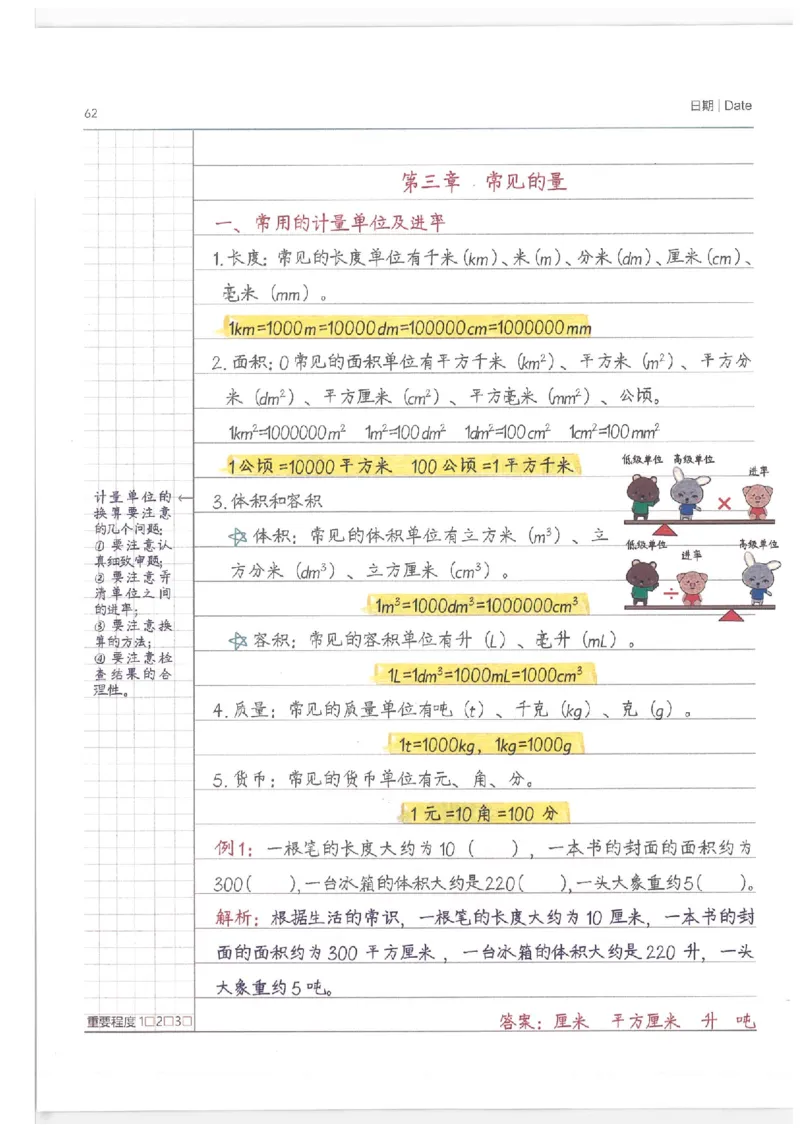 62
日期 | Date
第三章 常见的量
一、常用的计量单位及进率
1.长度：常见的长度单位有千米（km）、米（m）、分米（dm）、厘米（cm）、
毫米（mm）。
1km=1000m=10000dm=100000cm=1000000mm
2.面积：0常见的面积单位有平方千米（km²）、平方米（m²）、平方分
米（dm²）、平方厘米（cm²）、平方毫米（mm²）、公顷。
1km²=1000000m² 1m²=100dm² 1dm²=100cm² 1cm²=100mm²
1公顷=10000平方米 100公顷=1平方千米
3.体积和容积
☆体积：常见的体积单位有立方米（m³）、立
方分米（dm³）、立方厘米（cm³）。
1m³=1000dm³=1000000cm³
☆容积：常见的容积单位有升（L）、毫升（mL）。
1L=1dm³=1000mL=1000cm³
4.质量：常见的质量单位有吨（t）、千克（kg）、克（g）。
1t=1000kg，1kg=1000g
5.货币：常见的货币单位有元、角、分。
1元=10角=100分
例1：一根笔的长度大约为10（ ），一本书的封面的面积约为
300( ),一台冰箱的体积大约是220( ),一头大象重约5( )。
解析：根据生活的常识，一根笔的长度大约为10厘米，一本书的封
面的面积约为300平方厘米，一台冰箱的体积大约是220升，一头
大象重约5吨。
答案：厘米 平方厘米 升 吨
计量单位的←
换算要注意
的几个问题：
①要注意认
真细致审题；
②要注意弄
清单位之间
的进率；
③要注意换
算的方法；
④要注意检
查结果的合
理性。
低级单位 高级单位
进率
×
低级单位 进率 高级单位
÷
重要程度1□2□3□